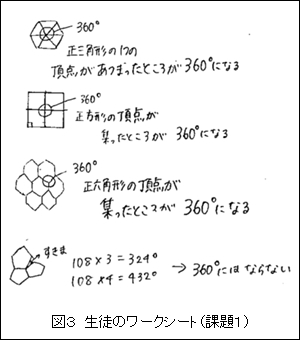 360°
正三角形の1つの
頂点があつまったところが360°になる
360°
正方形の頂点が
集ったところが 360°になる
360°
正六角形の頂点が
集ったところが 360°になる
すきま
108×3=324°
108×4=432°
→ 360°にはならない
図3 生徒のワークシート(課題1)